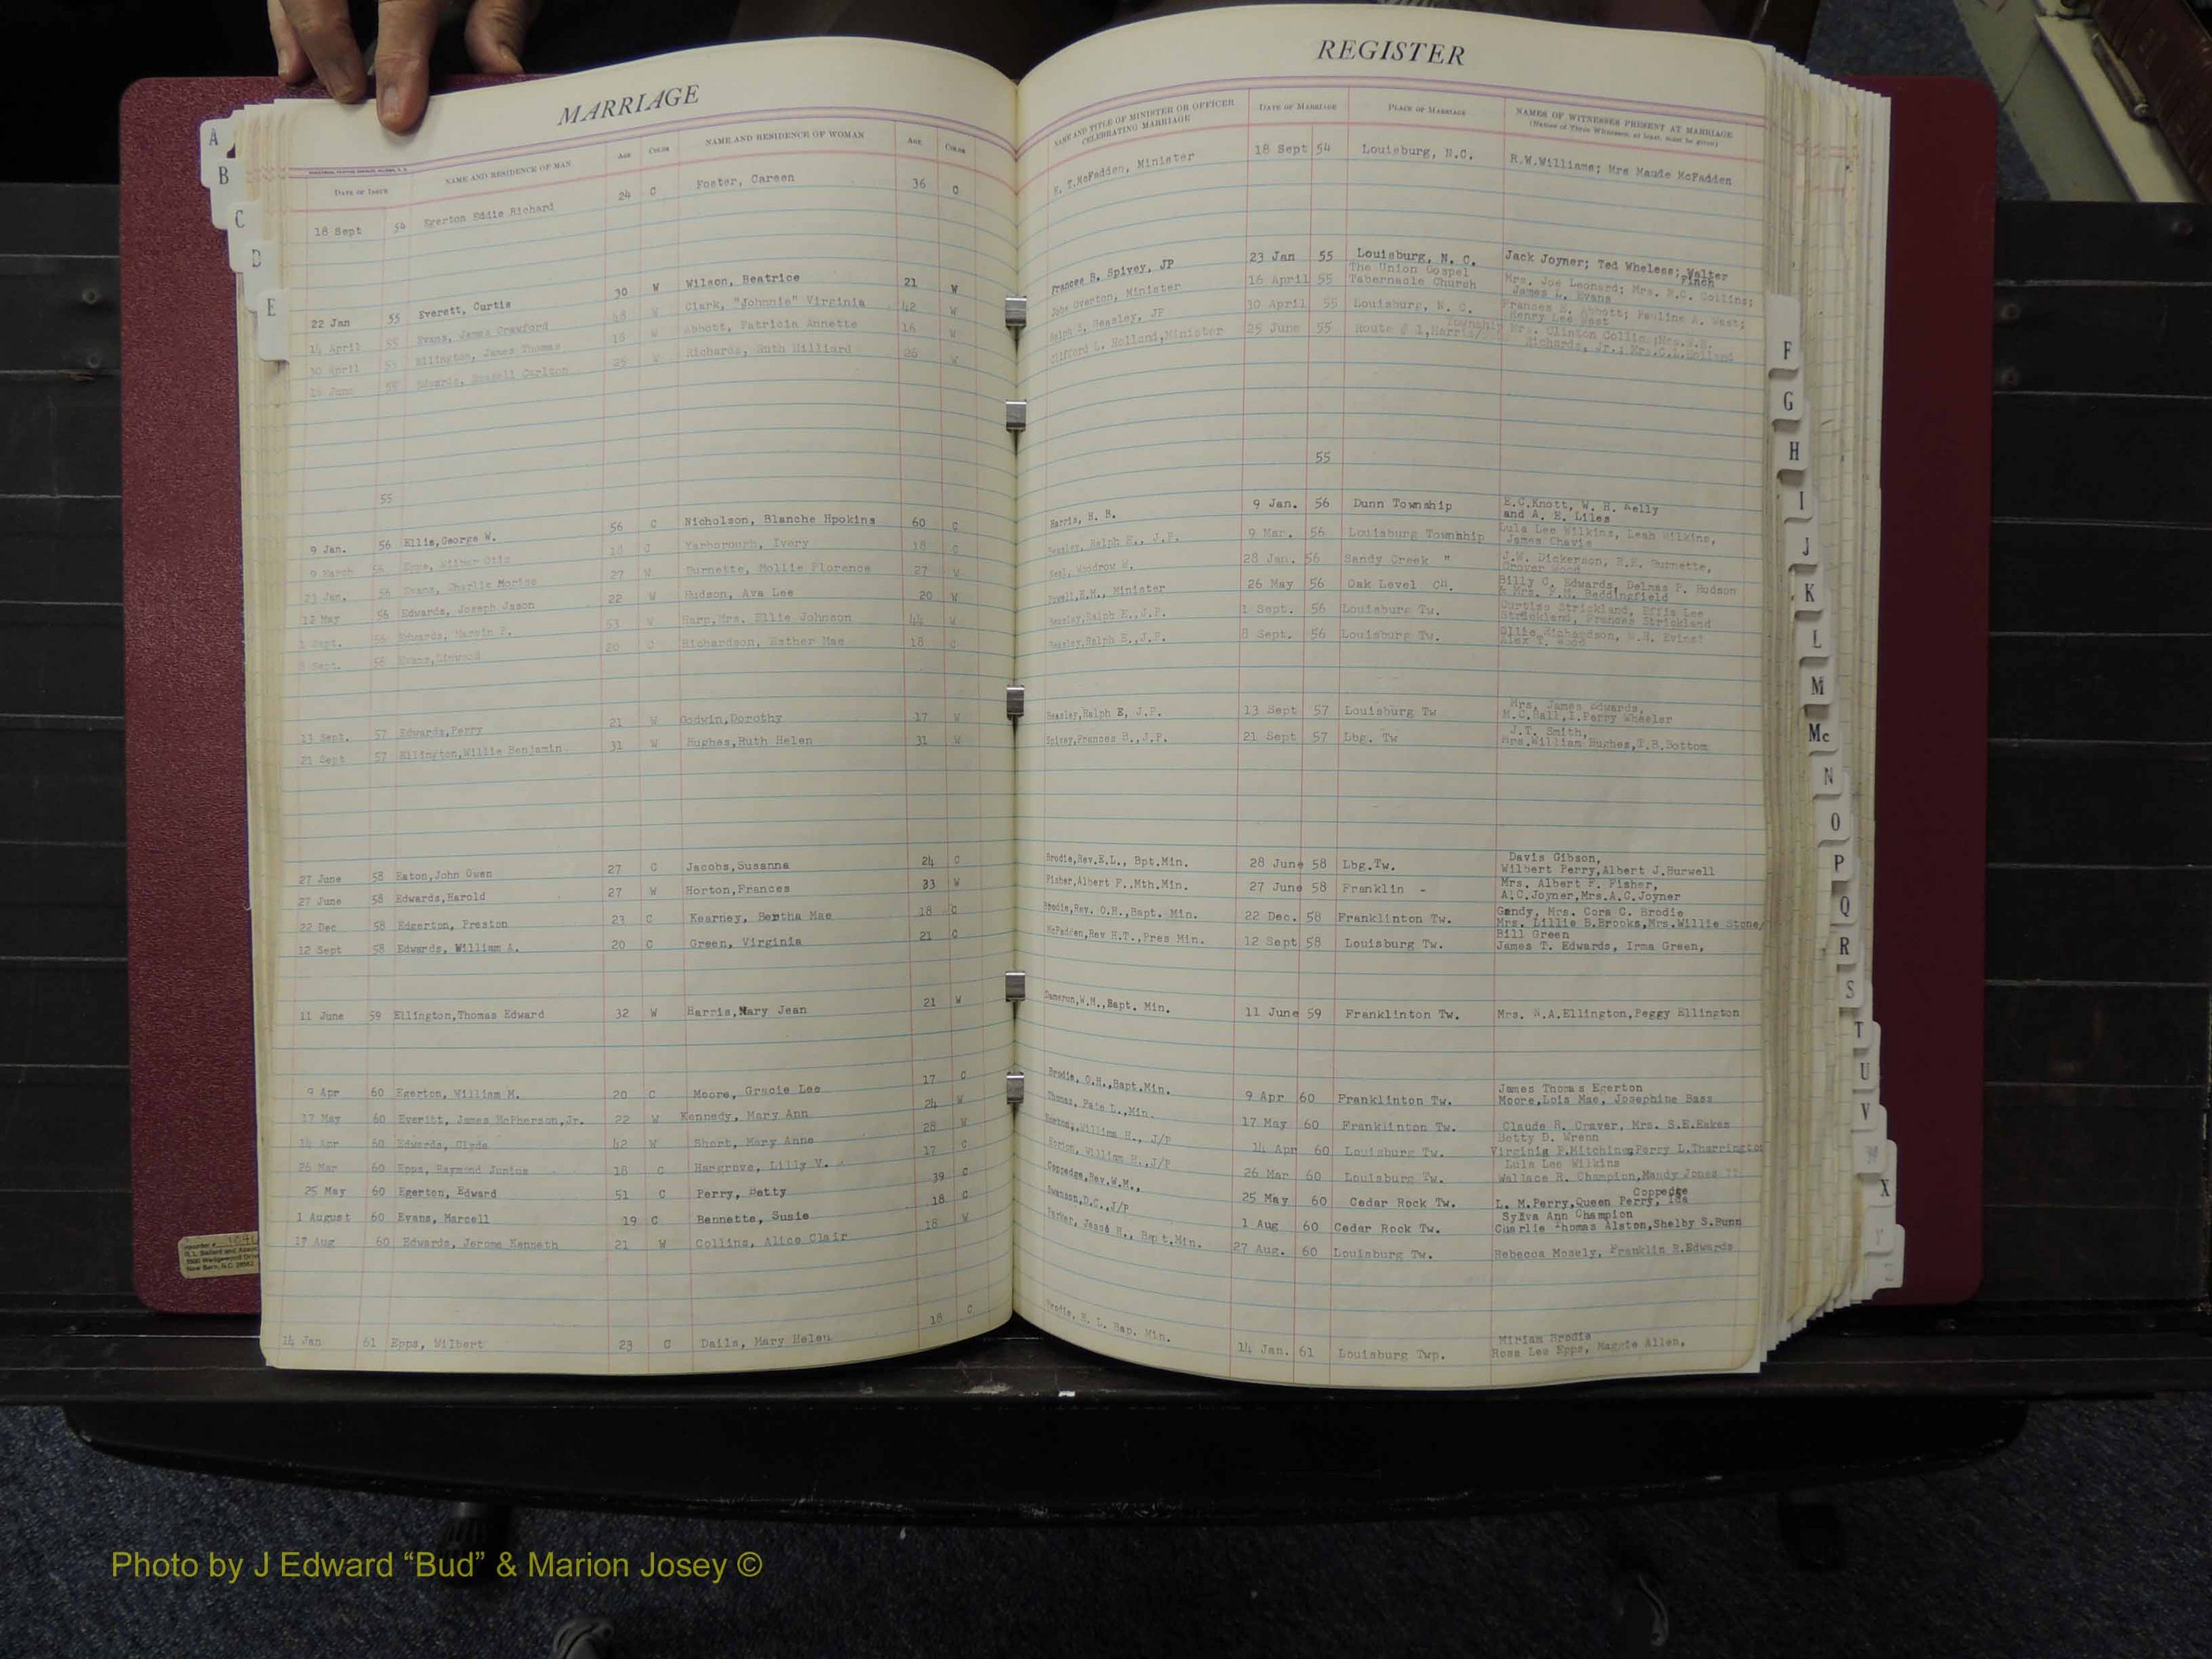 MARRIAGE
DATE OF ISSUE NAME AND RESIDENCE OF MAN AGE COLOR NAME AND RESIDENCE OF WOMAN AGE COLOR
18 Sept 54 Everton Eddie Richard 24 C Foster, Careen 36 C
22 Jan 55 Everett, Curtis 30 W Wilson, Beatrice 21 W
14 April 55 Evans, James Crawford 48 W Clark, "Johnnie" Virginia 42 W
30 April 55 Ellington, James Thomas 18 W Abbott, Patricia Annette 16 W
June 55 Edwards, Russell Carlton 25 W Richards, Ruth Hilliard 26 W
55
9 Jan. 56 Ellis,George W. 56 C Nicholson, Blanche Hpokins 60 C
9 March 56 Evans, Wilber Otis 18 C Yarborough, Ivory 18 C
23 Jan. 56 Evans, Charlie Morise 27 W Burnette, Mollie Florence 27 W
12 May 56 Edwards, Joseph Jason 22 W Hudson, Ava Lee 20 W
1 Sept. 56 Edwards, Marvin P. 53 W Harp,Mrs. Ellie Johnson 44 W
8 Sept. 56 Evans,Linwood 20 C Richardson, Esther Mae 18 C
13 Sept. 57 Edwards,Perry 21 W Godwin,Dorothy 17 W
21 Sept 57 Ellington,Willie Benjamin 31 W Hughes,Ruth Helen 31 W
27 June 58 Eaton,John Owen 27 C Jacobs,Susanna 24 C
27 June 58 Edwards,Harold 27 W Horton,Frances 33 W
22 Dec 58 Edgerton, Preston 23 C Kearney, Bertha Mae 18 C
12 Sept 58 Edwards, William A. 20 C Green, Virginia 21 C
11 June 59 Ellington,Thomas Edward 32 W Harris,Mary Jean 21 W
9 Apr 60 Egerton, William M. 20 C Moore, Gracie Lee 17 C
17 May 60 Everitt, James McPherson,Jr. 22 W Kennedy, Mary Ann 24 W
14 Apr 60 Edwards, Clyde 42 W Short, Mary Anne 28 W
26 Mar 60 Epps, Raymond Junius 18 C Hargrove, Lilly V. 17 C
25 May 60 Egerton, Edward 51 C Perry, Betty 39 C
1 August 60 Evans, Marcell 19 C Bennette, Susie 18 C
17 Aug 60 Edwards, Jerome Kenneth 21 W Collins, Alice Clair 18 W
14 Jan 61 Epps, Wilbert 23 C Dails, Mary Helen 18 C
REGISTER
NAME AND TITLE OF MINISTER OR OFFICER CELEBRATING MARRIAGE DATE OF MARRIAGE PLACE OF MARRIAGE NAMES OF WITNESSES PRESENT AT MARRIAGE
(Names of Three Witnesses, at least, must be given)
H. T.McFadden, Minister 18 Sept 54 Louisburg, N.C. R.W.Williams; Mrs Maude McFadden
Frances B. Spivey, JP 23 Jan 55 Louisburg, N. C. Jack Joyner; Ted Wheless; Walter Finch
John Overton, Minister 16 April 55 The Union Gospel Tabernacle Church Mrs. Joe Leonard; Mrs. R.C. Collins; James L. Evans
Ralph E. Beasley, JP 30 April 55 Louisburg, N. C. Frances N. Abbott; Pauline A. West; Henry Lee West
Clifford L. Holland,Minister 25 June 55 Route # 1,Harris Township Mrs. Clinton Collie ; Richards, Jr.; Mrs.C.L.Holland
55
Harris, H. B. 9 Jan. 56 Dunn Township E.C.Knott, W. H. Kelly
and A. E. Liles
Beasley, Ralph E., J.P. 9 Mar. 56 Louisburg Township Lula Lee Wilkins, Leah Wilkins,
James Chavis
Neal, Woodrow W. 28 Jan. 56 Sandy Creek " J.W. Dickerson, R.E. Burnette,
Grover Wood
Powell,E.M., Minister 26 May 56 Oak Level Ch. Billy C. Edwards, Delmas P. Hudson
& Mrs. F.M. Beddingfield
Beasley,Ralph E.,J.P. 1 Sept. 56 Louisburg Tw. Curtiss Strickland, Effie Lee
Strickland, Frances Strickland
Beasley,Ralph E.,J.P. 8 Sept. 56 Louisburg Tw. Ollie Richardson, W.H. Evins!
Alex T. Wood
Beasley,Ralph E, J.P. 13 Sept 57 Louisburg Tw Mrs. James Edwards,
M.C.Hall,I.Perry Wheeler
Spivey,Frances B.,J.P. 21 Sept 57 Lbg. Tw J.T. Smith,
Mrs.William Hughes,T.B.Bottom
Brodie,Rev.E.L., Bpt.Min. 28 June 58 Lbg.Tw. Davis Gibson,
Wilbert Perry,Albert J.Burwell
Fisher,Albert F.,Mth.Min. 27 June 58 Franklin - Mrs. Albert F. Fisher,
A.C.Joyner,Mrs.A.C.Joyner
Brodie,Rev. O.H.,Bapt. Min. 22 Dec. 58 Franklinton Tw. Gandy, Mrs. Cora C. Brodie
Mrs. Lillie B.Brooks,Mrs.Willie Stone/
McFadden,Rev H.T.,Pres Min. 12 Sept 58 Louisburg Tw. Bill Green
James T. Edwards, Irma Green,
Dameron,W.M.,Bapt. Min. 11 June 59 Franklinton Tw. Mrs. N.A.Ellington,Peggy Ellington
Brodie, O.H.,Bapt.Min. 9 Apr 60 Franklinton Tw. James Thomas Egerton
Moore,Lois Mae, Josephine Bass
Thomas, Pate L.,Min. 17 May 60 Franklinton Tw. Claude R. Craver, Mrs. S.E.Eakes
Horton,William H., J/P 14 Apr 60 Louisburg Tw. Betty D. Wrenn
Virginia P.Mitchiner,Perry L.Tharrington
Horton, William H.,J/P 26 Mar 60 Louisburg Tw. Lula Lee Wilkins
Wallace R. Champion,Mandy Jones
Coppedge,Rev.W.M., 25 May 60 Cedar Rock Tw. L. M.Perry,Queen Perry, Ida Coppedge
Swanson,D.C.,J/P 1 Aug 60 Cedar Rock Tw. Sylva Ann Champion
Charlie Thomas Alston,Shelby S.Bunn
Parker, Jesse H., Bapt.Min. 27 Aug. 60 Louisburg Tw. Rebecca Mosely, Franklin R.Edwards
Brodie, E. L. Bap. Min. 14 Jan. 61 Louisburg Twp. Miriam Brodie
Rosa Lee Epps, Maggie Allen,
A
B
C
D
E
F
G
H
I
J
K
L
M
Mc
N
O
P
Q
R
S
T
U
V
W
X
Y
Photo by J Edward “Bud” & Marion Josey ©